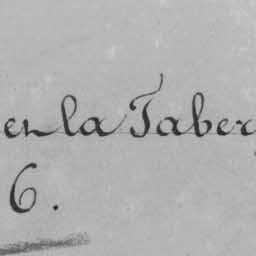 en la Taber
6.